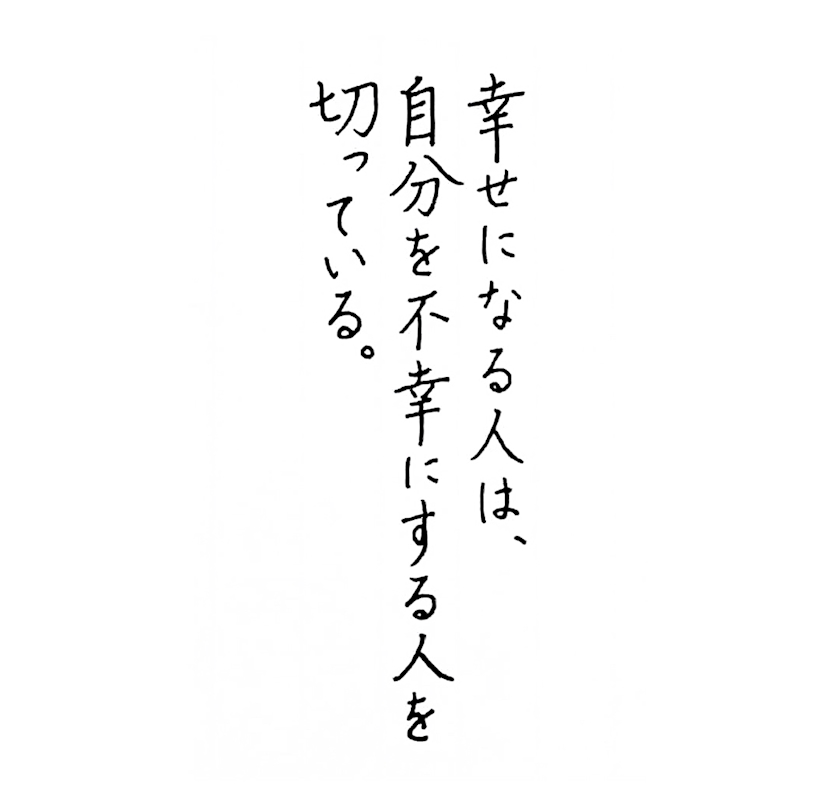 幸せになる人は、
自分を不幸にする人を
切っている。